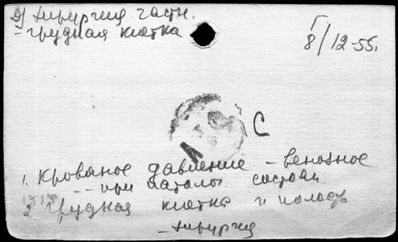 д) хирургия частн.
- грудная клетка
I
8/12-55.
С
1. Кровяное давление - венозное
-- при патолог. состоян.
2. Грудная клетка и полость
- хирургия